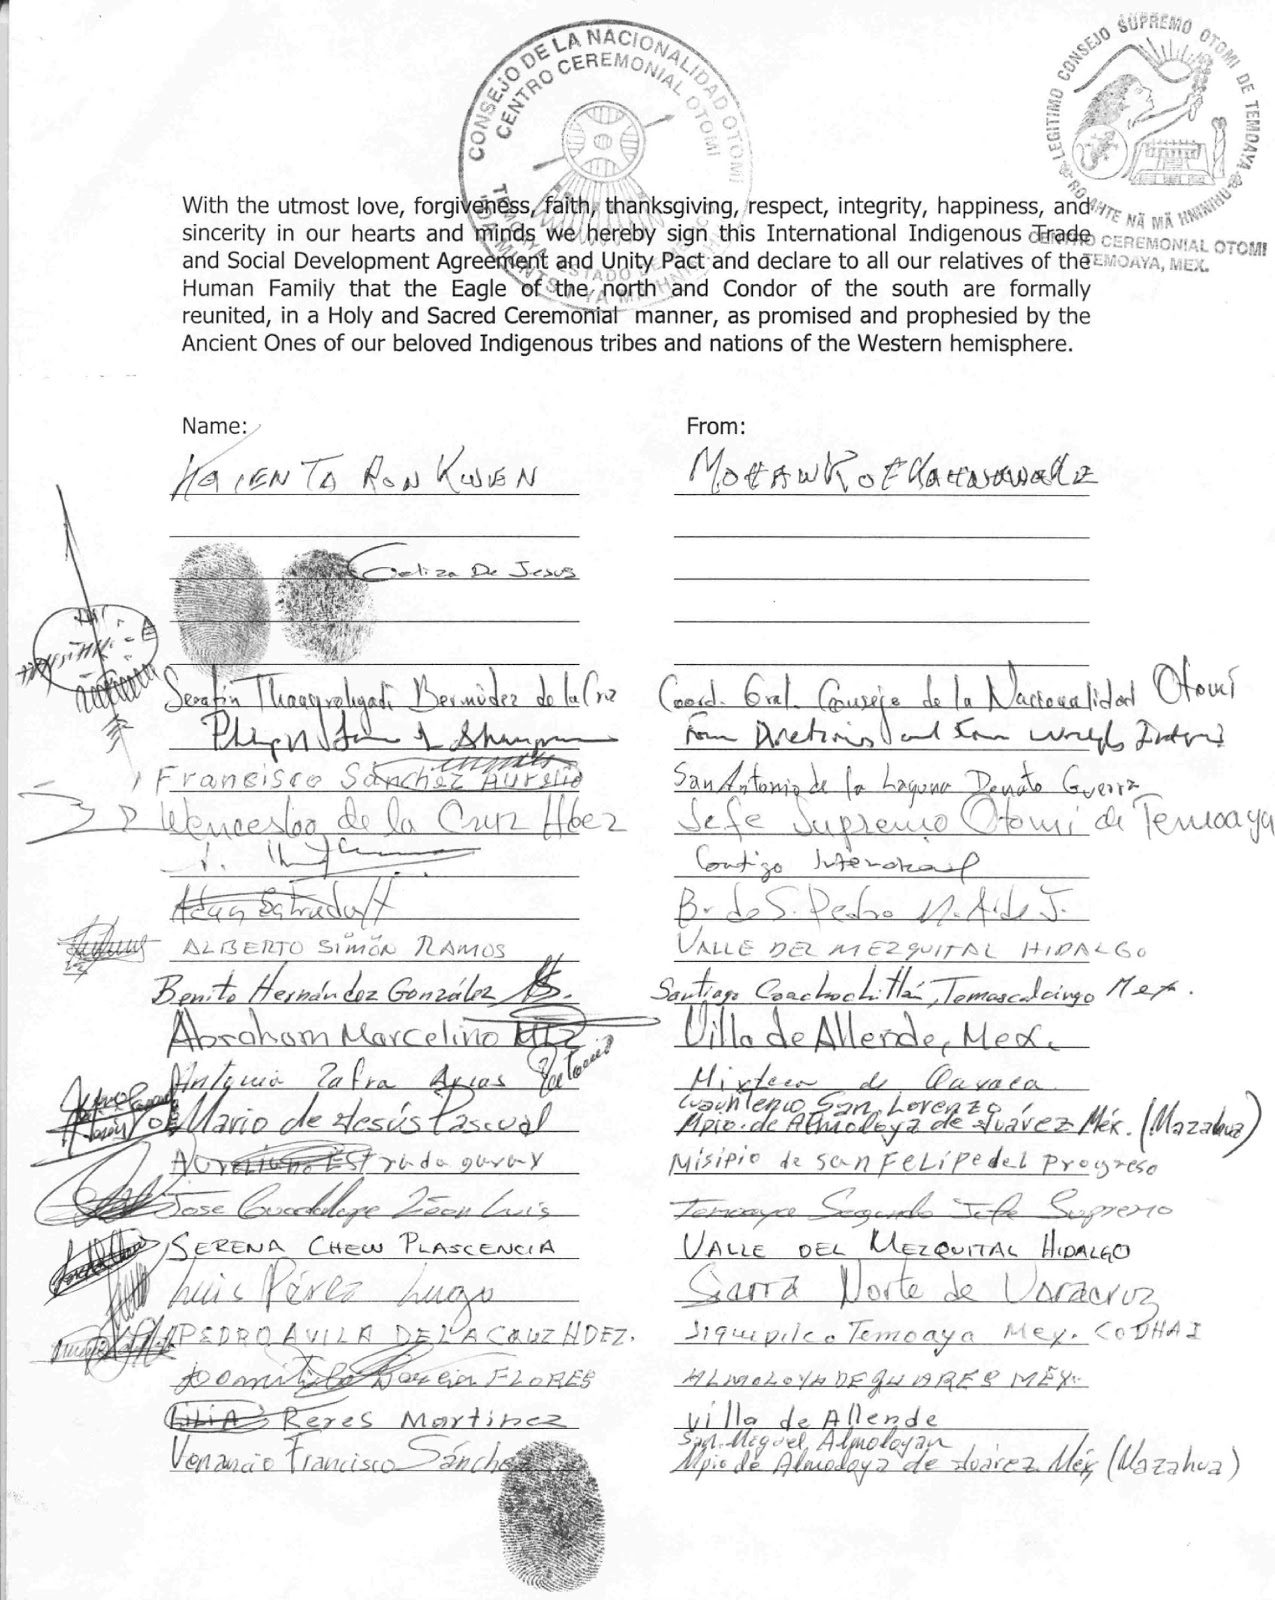 CONSEJO DE LA NACIONALIDAD OTOMI
CENTRO CEREMONIAL OTOMI
TEMOAYA ESTADO DE
LEGITIMO CONSEJO SUPREMO OTOMI DE TEMOAYA
NÄ MÄ HNINIHU
CENTRO CEREMONIAL OTOMI
TEMOAYA, MEX.
With the utmost love, forgiveness, faith, thanksgiving, respect, integrity, happiness, and
sincerity in our hearts and minds we hereby sign this International Indigenous Trade
and Social Development Agreement and Unity Pact and declare to all our relatives of the
Human Family that the Eagle of the north and Condor of the south are formally
reunited, in a Holy and Sacred Ceremonial manner, as promised and prophesied by the
Ancient Ones of our beloved Indigenous tribes and nations of the Western hemisphere.
Name: From:
KAIENTARONKWEN MOHAWK OF KAHNAWAKE
De Jesus
Serafín Bermúdez de la Cruz Coord. Gral. Consejo de la Nacionalidad Otomí
Francisco Sánchez Aurelio San Antonio de la Laguna Donato Guerra
Wenceslao de la Cruz Hdez Jefe Supremo Otomi de Temoaya
ALBERTO SIMÓN RAMOS VALLE DEL MEZQUITAL HIDALGO
Benito Hernández González Santiago Coachochitlán, Temascalcingo Mex.
Abraham Marcelino Villa de Allende, Mex.
Antonia Zafra Arias Mixteca de Oaxaca
San Lorenzo
Mario de Jesús Pascual Mpio. de Almoloya de Juárez Méx. (Mazahua)
Estrada garay de San FELIPE del Progreso
Jose Guadalupe Luis Temoaya Segundo Jefe Supremo
SERENA CHEW PLASCENCIA VALLE DEL MEZQUITAL HIDALGO
Luis Pérez Lugo Sierra Norte de Veracruz
PEDRO AVILA DE LA CRUZ HDEZ. Jiquipilco Temoaya Mex. CODHAI
FLORES ALMOLOYA DE MÉX.
LIBIA Reres Martinez Villa de Allende
San Miguel Almoloyan
Venancio Francisco Sánchez Mpio de Almoloya de Juárez Méx (Mazahua)